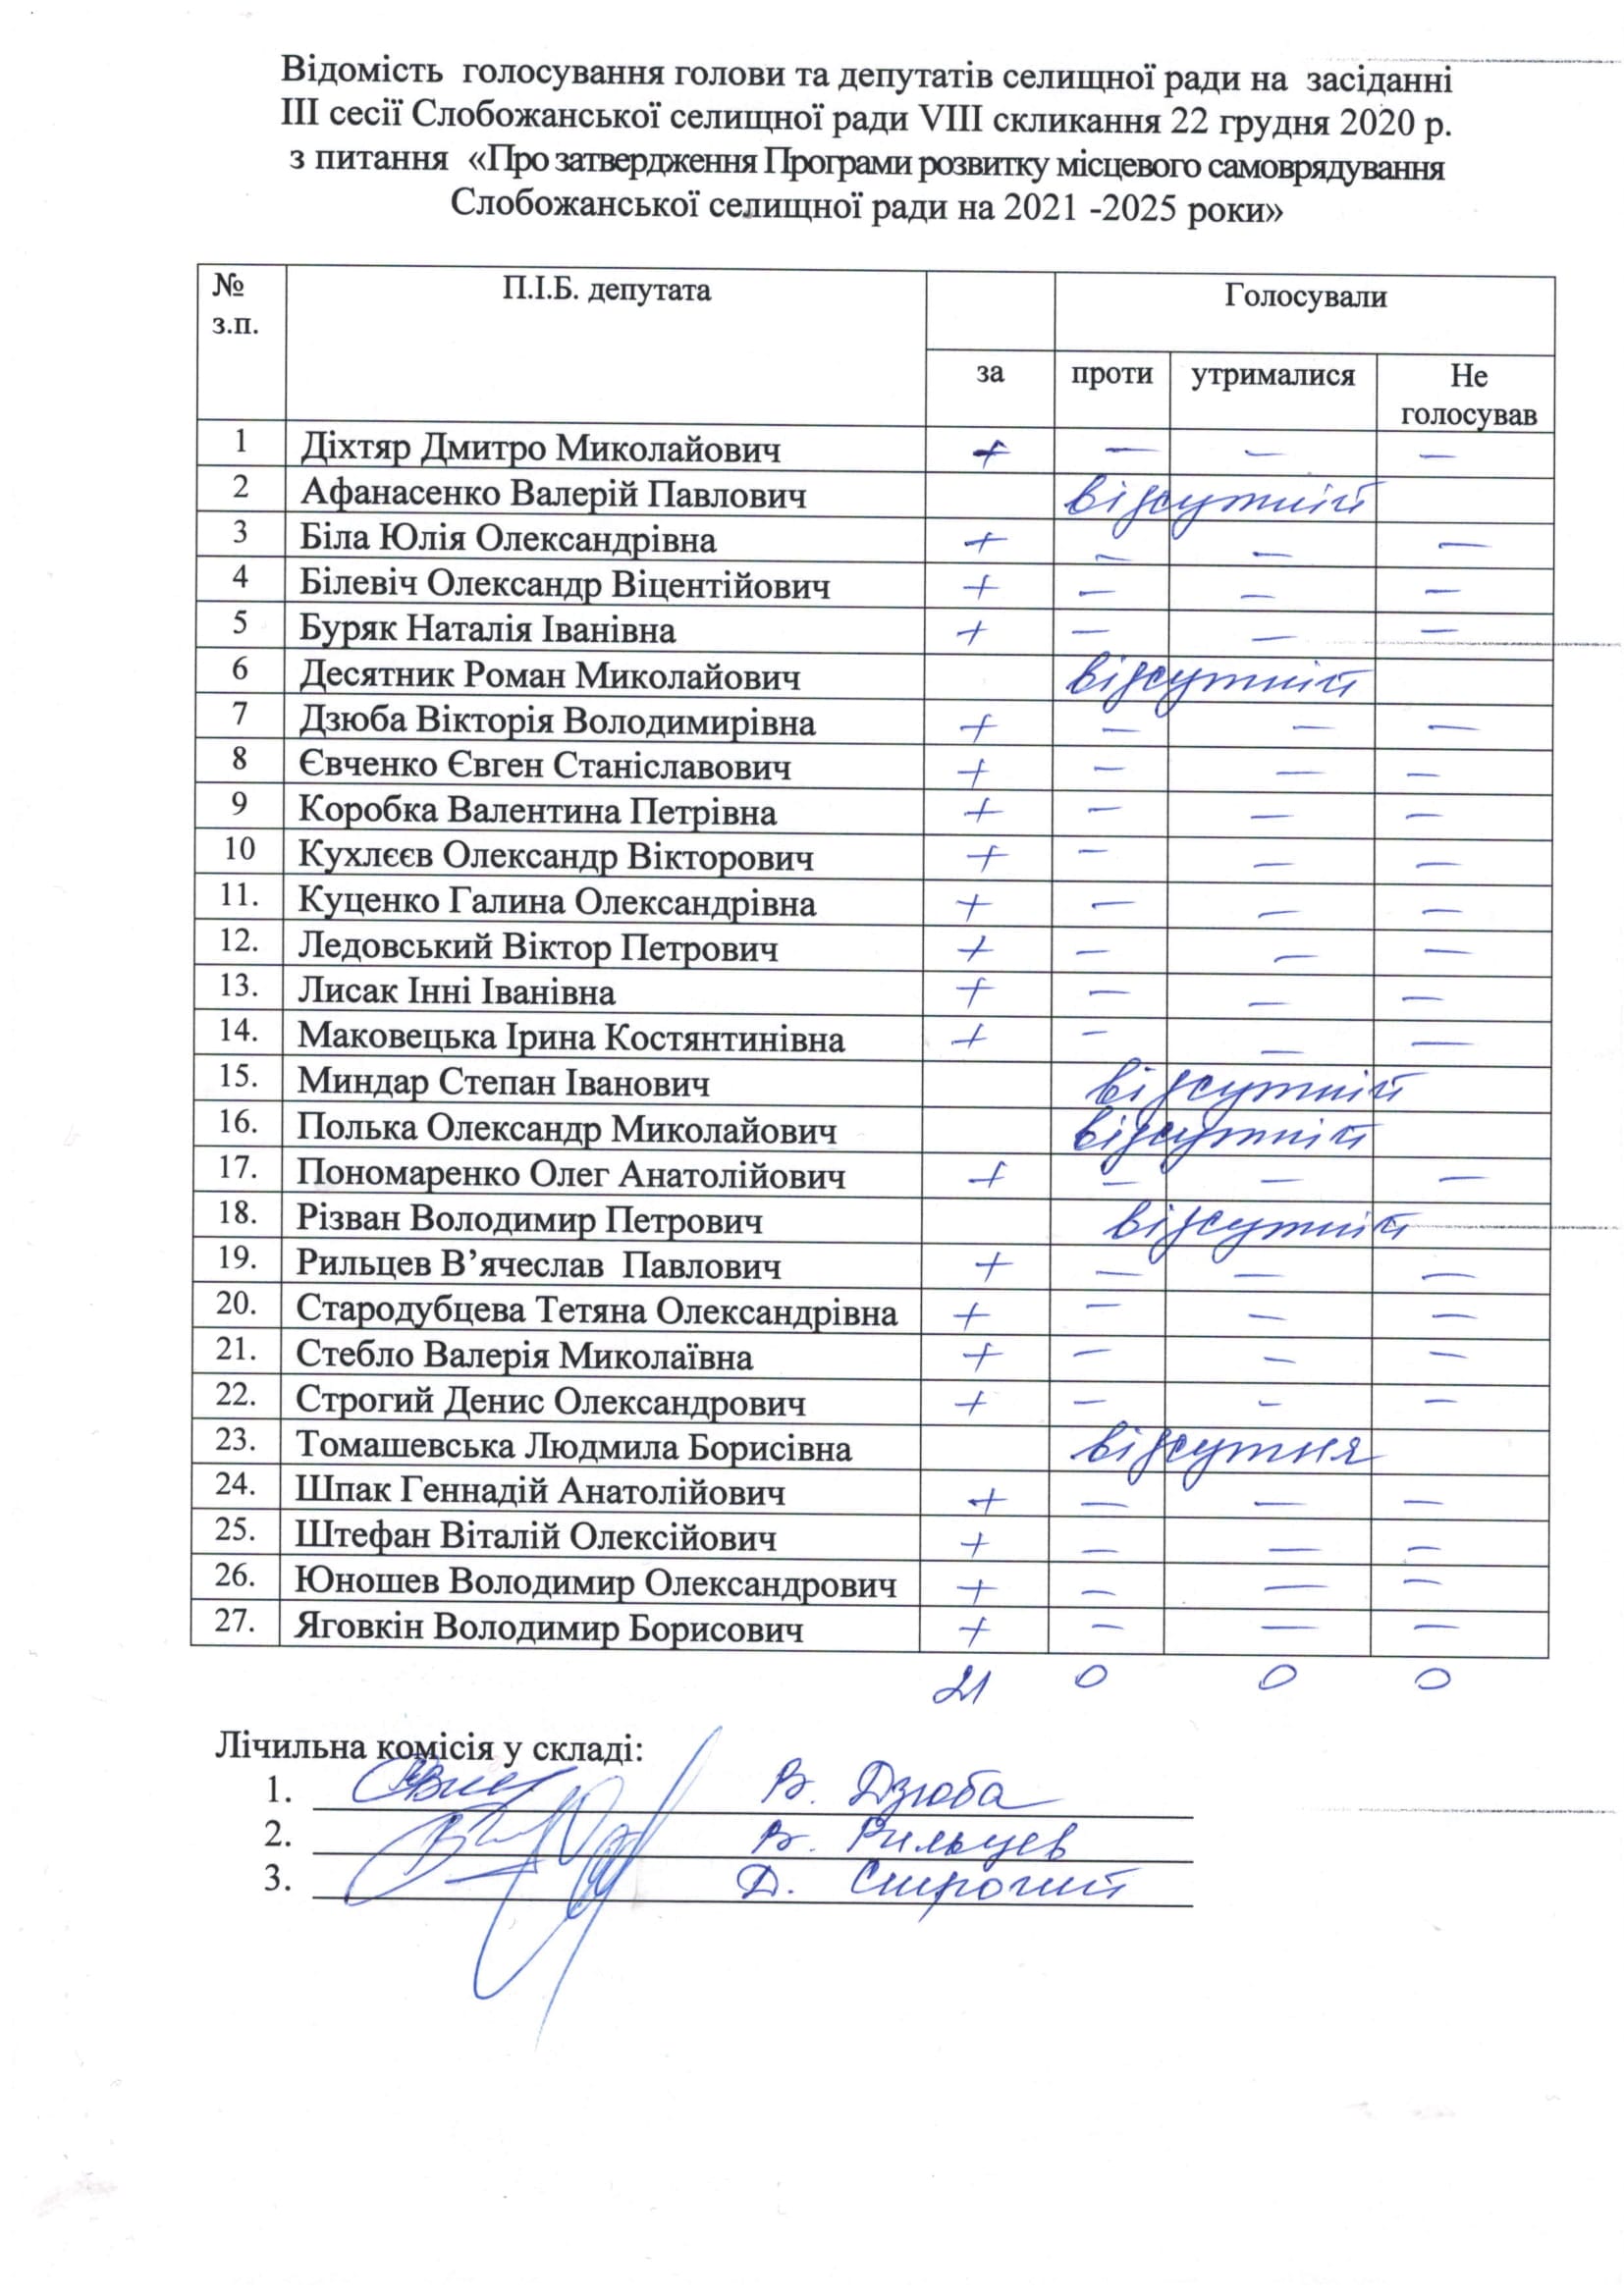 Відомість голосування голови та депутатів селищної ради на засіданні
ІІІ сесії Слобожанської селищної ради VIII скликання 22 грудня 2020 р.
з питання «Про затвердження Програми розвитку місцевого самоврядування
Слобожанської селищної ради на 2021 -2025 роки»
№ з.п. П.І.Б. депутата Голосували
за проти утрималися Не голосував
1 Діхтяр Дмитро Миколайович + — — —
2 Афанасенко Валерій Павлович відсутній
3 Біла Юлія Олександрівна + — — —
4 Білевіч Олександр Віцентійович + — — —
5 Буряк Наталія Іванівна + — — —
6 Десятник Роман Миколайович відсутній
7 Дзюба Вікторія Володимирівна + — — —
8 Євченко Євген Станіславович + — — —
9 Коробка Валентина Петрівна + — — —
10 Кухлєєв Олександр Вікторович + — — —
11. Куценко Галина Олександрівна + — — —
12. Ледовський Віктор Петрович + — — —
13. Лисак Інні Іванівна + — — —
14. Маковецька Ірина Костянтинівна + — — —
15. Миндар Степан Іванович відсутній
16. Полька Олександр Миколайович відсутній
17. Пономаренко Олег Анатолійович + — — —
18. Різван Володимир Петрович відсутній
19. Рильцев В’ячеслав Павлович + — — —
20. Стародубцева Тетяна Олександрівна + — — —
21. Стебло Валерія Миколаївна + — — —
22. Строгий Денис Олександрович + — — —
23. Томашевська Людмила Борисівна відсутня
24. Шпак Геннадій Анатолійович + — — —
25. Штефан Віталій Олексійович + — — —
26. Юношев Володимир Олександрович + — — —
27. Яговкін Володимир Борисович + — — —
21 0 0 0
Лічильна комісія у складі:
1. В. Дзюба
2. В. Рильцев
3. Д. Строгий